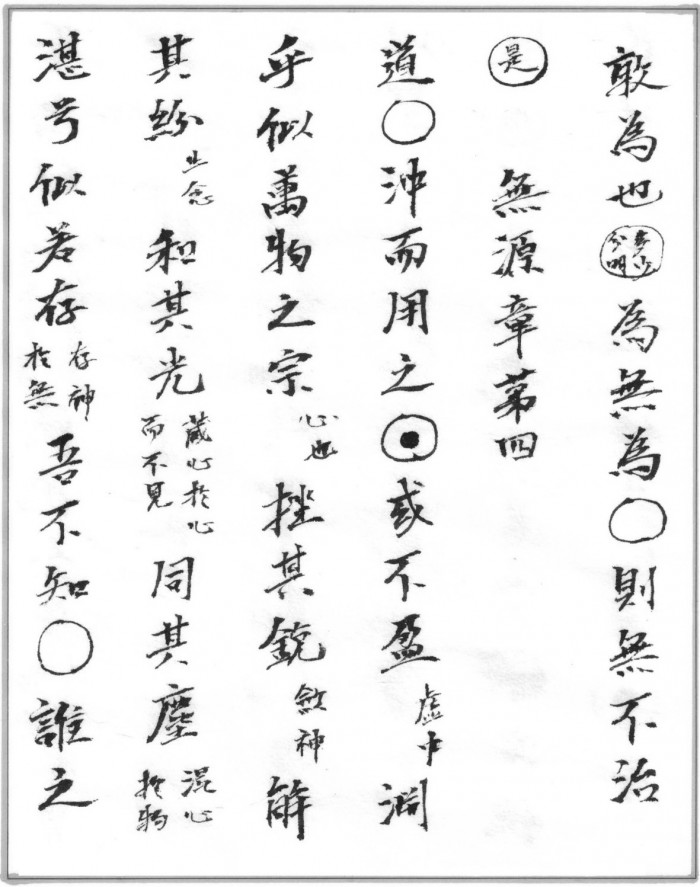 敢為也多少分明為無為〇則無不治
是　無源章第四
道〇沖而用之⊙或不盈虛中淵
乎似萬物之宗心也挫其銳斂神解
其紛止念和其光藏心於心而不見同其塵混心於物
湛兮似若存存神於無吾不知〇誰之